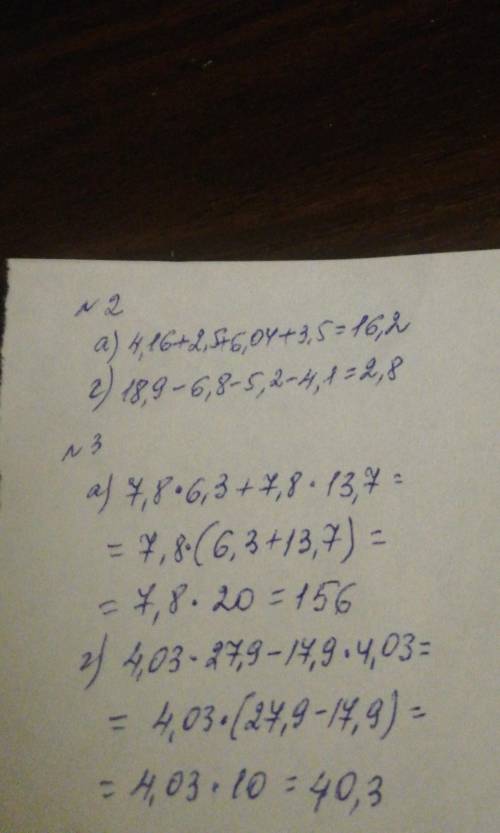 №2
а) 4,16+2,5+6,04+3,5=16,2
г) 18,9-6,8-5,2-4,1=2,8
№3
а) 7,8·6,3+7,8·13,7=
=7,8·(6,3+13,7)=
=7,8·20=156
г) 4,03·27,9-17,9·4,03=
=4,03·(27,9-17,9)=
=4,03·10=40,3